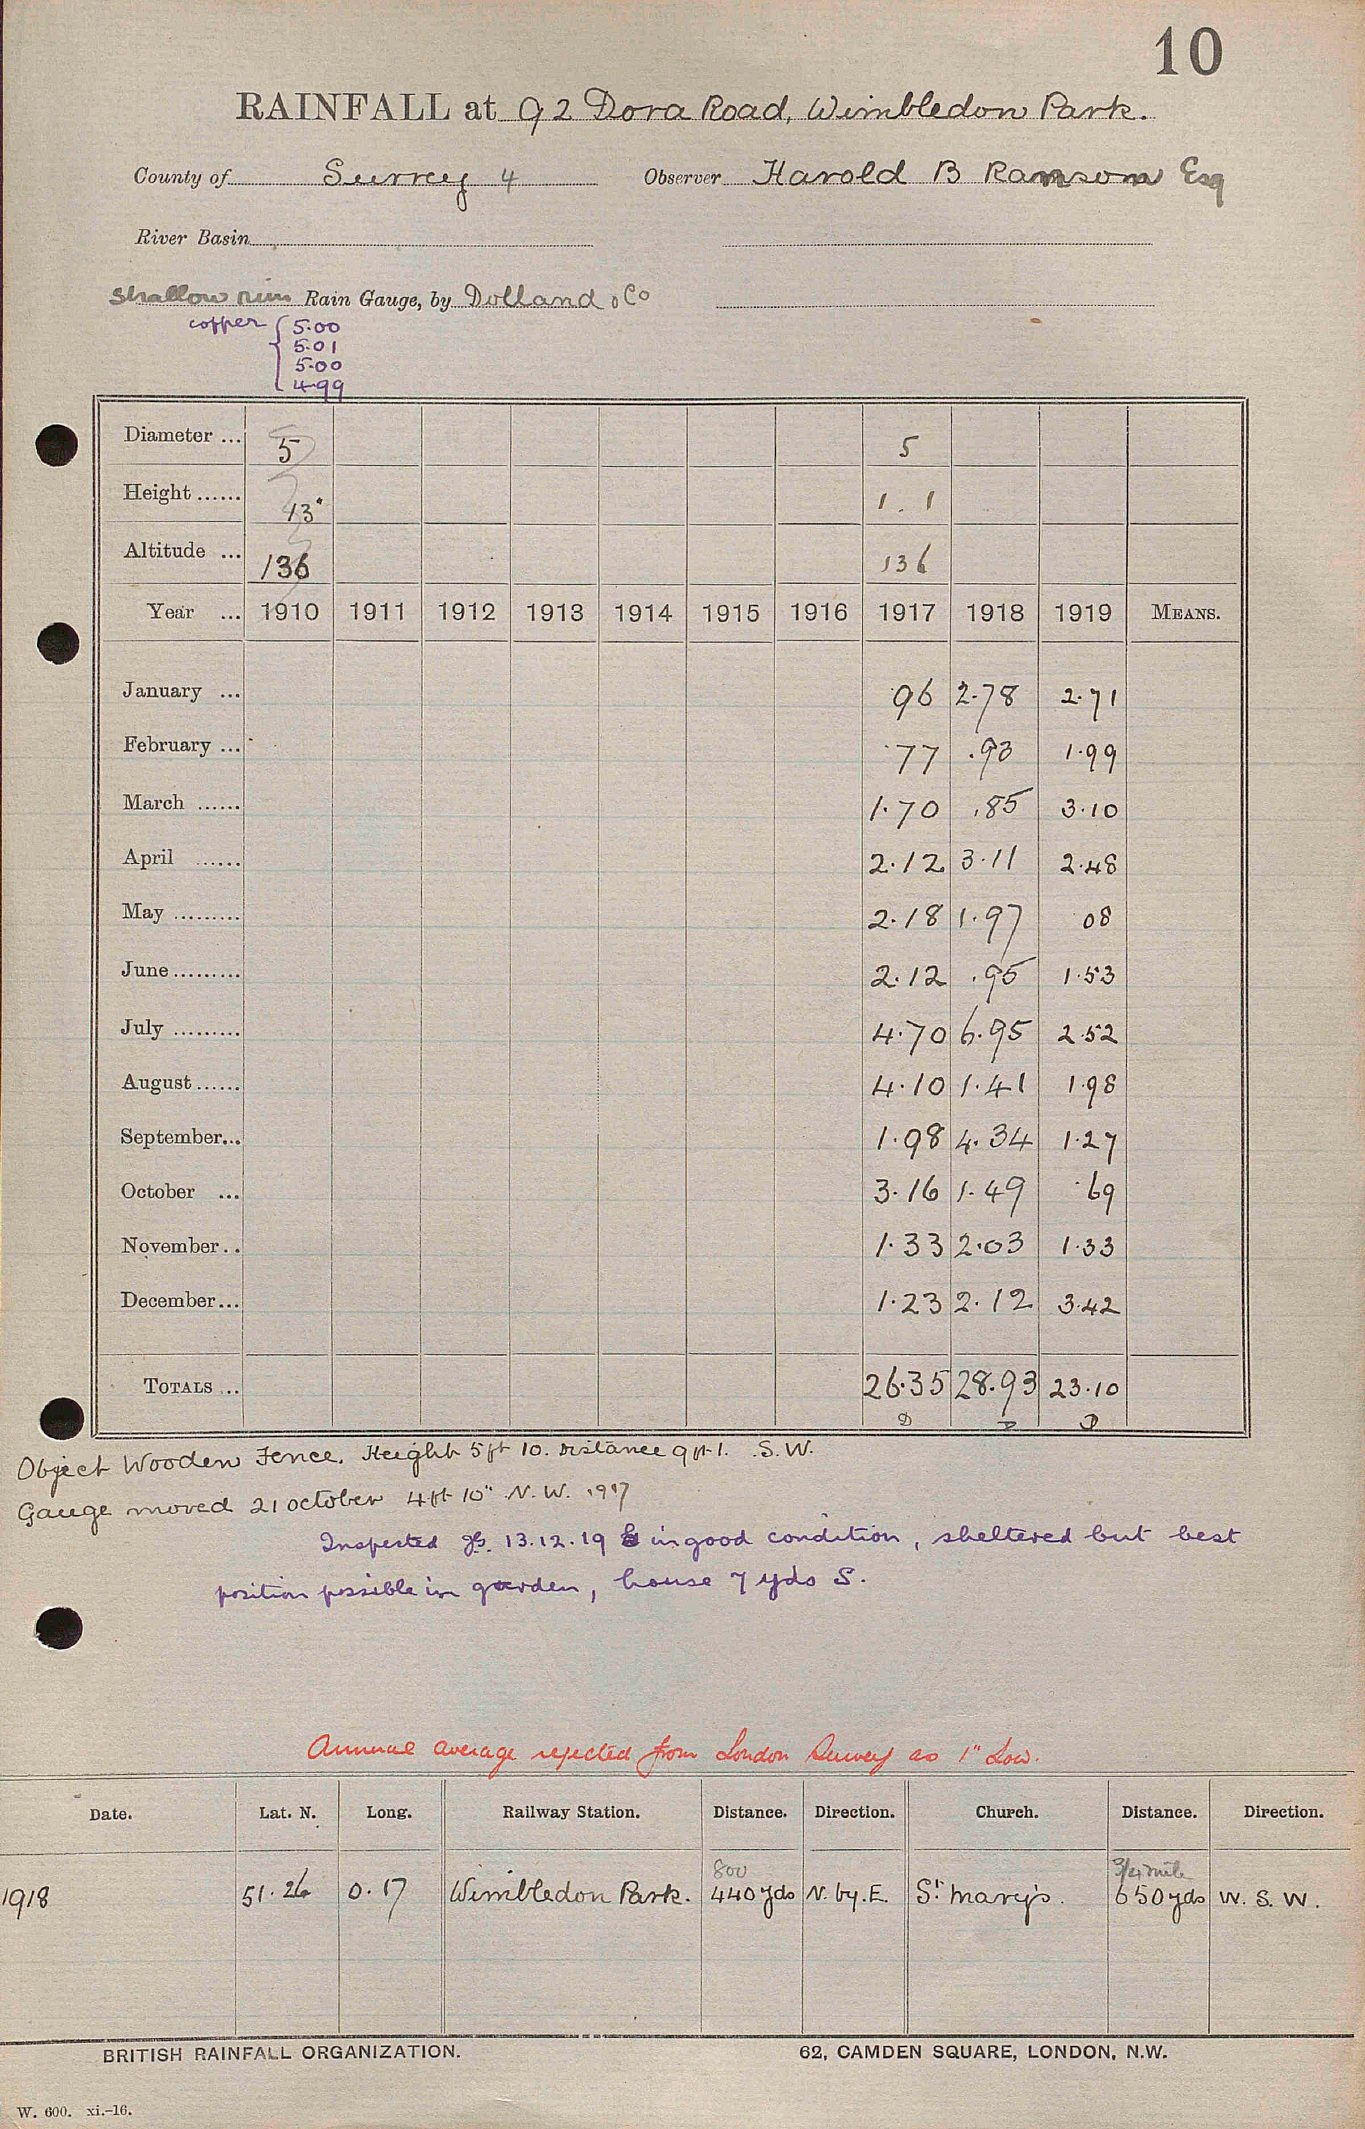 10
RAINFALL at 92 Dora Road, Wimbledon Park.
County of Surrey 4 Observer Harold B Ransom Esq
River Basin
Shallow rim Rain Gauge, by Dolland & Co
copper { 5.00
5.01
5.00
4.99
Diameter ... 5 5
Height ...... 13" 1.1
Altitude ... 136 136
Year ... 1910 1911 1912 1913 1914 1915 1916 1917 1918 1919 MEANS.
January ... .96 2.78 2.71
February ... .77 .93 1.99
March ...... 1.70 .85 3.10
April ...... 2.12 3.11 2.48
May ......... 2.18 1.97 .08
June ......... 2.12 .95 1.53
July ......... 4.70 6.95 2.52
August ...... 4.10 1.41 1.98
September... 1.98 4.34 1.27
October ... 3.16 1.49 .69
November .. 1.33 2.03 1.33
December ... 1.23 2.12 3.42
TOTALS ... 26.35 28.93 23.10
D D D
Object Wooden Fence. Height 5ft 10. Distance 9ft 1. S.W.
Gauge moved 21 October 4ft 10" N.W. 1917
Inspected 13.12.19 in good condition, sheltered but best
position possible in garden, house 7 yds S.
Annual average rejected from London Survey as 1" Low.
Date. Lat. N. Long. Railway Station. Distance. Direction. Church. Distance. Direction.
800 3/4 mile
1918 51.26 0.17 Wimbledon Park. 440 yds N. by. E. St Mary's. 650 yds W. S. W.
BRITISH RAINFALL ORGANIZATION. 62, CAMDEN SQUARE, LONDON, N.W.
W. 600. xi.-16.